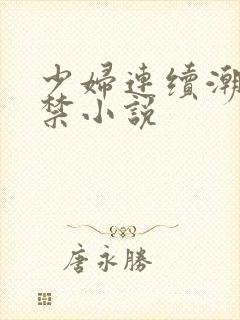 少婦連續潮
禁小説
唐永勝